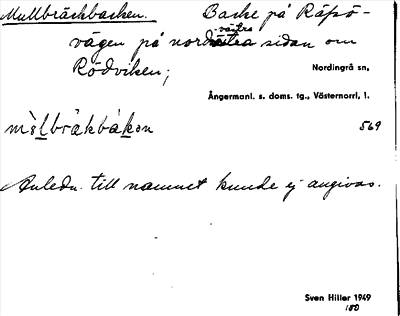 Mullbräckbacken. Backe på Räfsö-
vägen på nordvästra sidan om
Rödviken;
Nordingrå sn,
Ångermanl. s. doms. tg., Västernorrl. l.
569
Anledn. till namnet kunde ej angivas.
Sven Hiller 1949
150